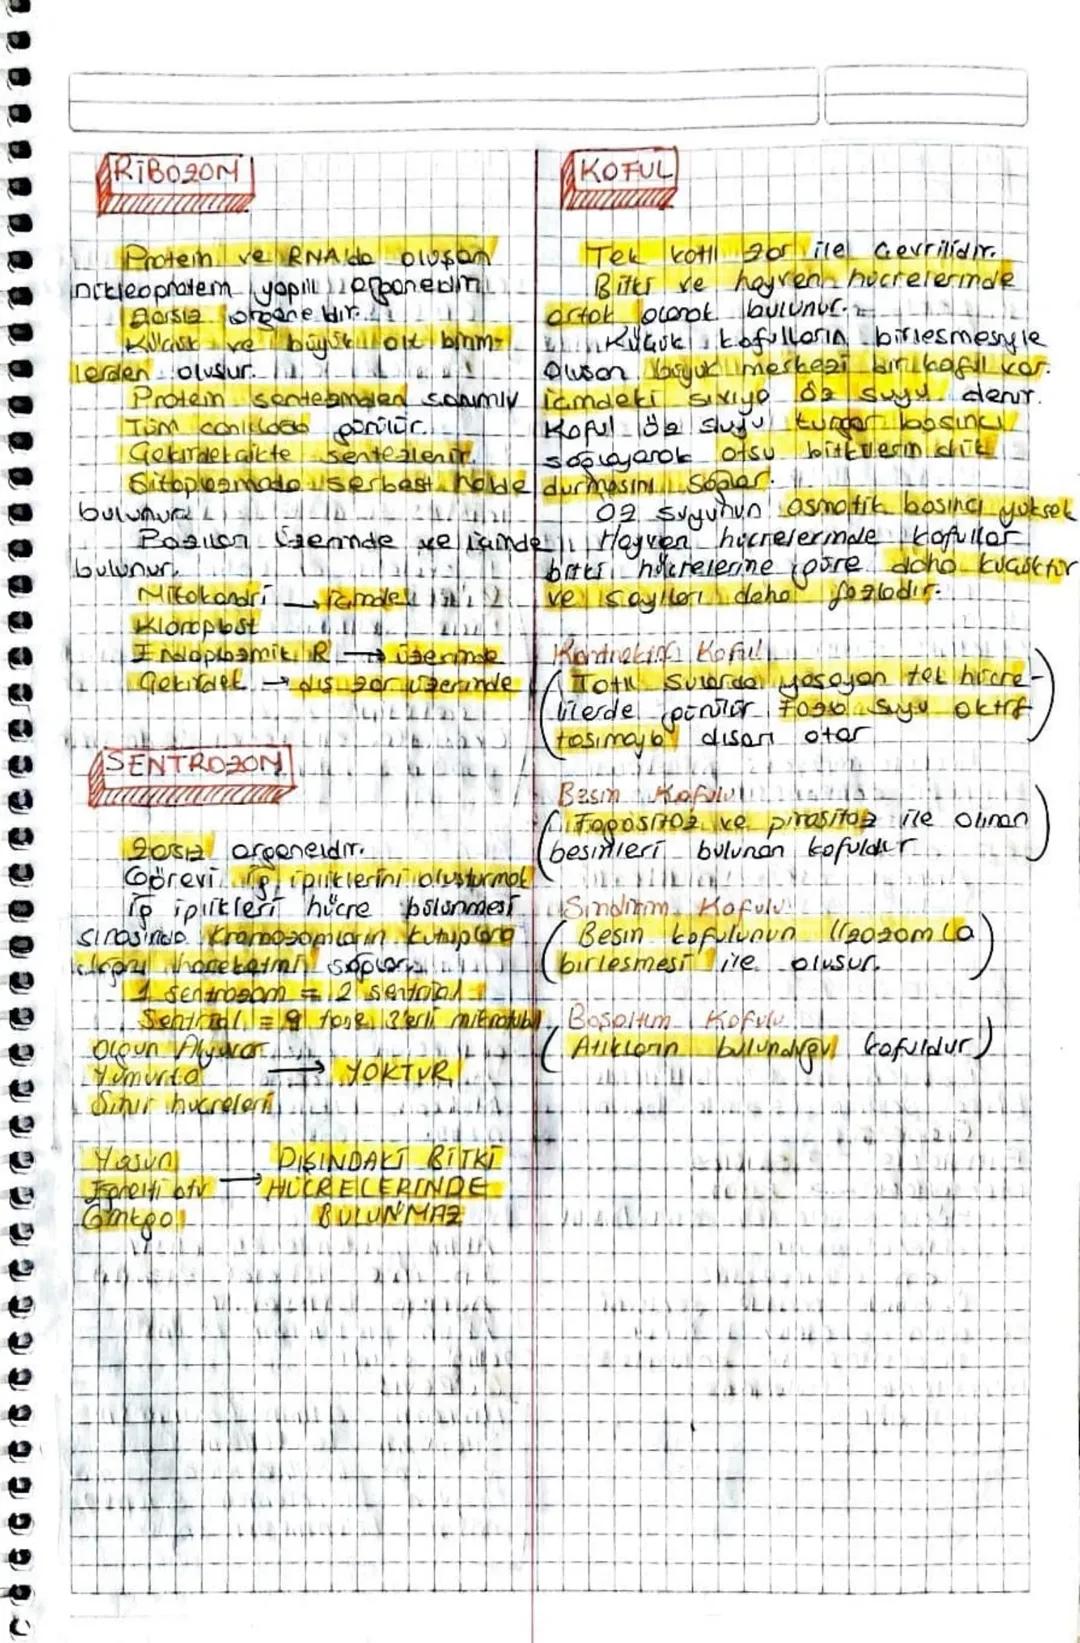 RİBOZOM
Protein ve RNA'da oluşan
nükleoprotein yapılı organeldir.
Zarsız organeldir.
Küçük ve büyük alt birim-
lerden oluşur.
Protein sentezinden sorumlu
Tüm canlılarda görülür.
Çekirdekçikte sentezlenir.
Sitoplazmada serbest halde
bulunur.
Bazıları üzerinde ve içinde
bulunur.
Mitokondri → içinde
Kloroplast
Endoplazmik R → üzerinde
Çekirdek → dış zar üzerinde
SENTROZOM
Zarsız organeldir.
Görevi iğ ipliklerini oluşturmak
iğ iplikleri hücre bölünmesi
sırasında kromozomların kutuplara
doğru hareketini sağlar.
1 sentrozom = 2 sentriol
Sentriol = 9 tane 3'erli mikrotübül
Olgun Alyuvar
Yumurta → YOKTUR
Sinir hücreleri
Yosun DIŞINDAKİ BİTKİ
Eğrelti otu → HÜCRELERİNDE
Ginkgo BULUNMAZ
KOFUL
Tek katlı zar ile çevrilidir.
Bitki ve hayvan hücrelerinde
ortak olarak bulunur.
Küçük kofulların birleşmesiyle
oluşan büyük merkezi bir koful var.
içindeki sıvıya öz suyu denir.
Koful öz suyu turgor basıncı
sağlayarak otsu bitkilerin dik
durmasını sağlar.
Öz suyunun osmotik basıncı yüksek
Hayvan hücrelerinde kofullar
bitki hücrelerine göre daha küçüktür
ve sayıları daha fazladır.
Kontraktif Koful
(Tatlı sularda yaşayan tek hücre-
lilerde görülür fazla suyu aktif
taşımayla dışarı atar)
Besin Kofulu
(Fagositoz ve pinositoz ile alınan
besinleri bulunan kofuldur)
Sindirim Kofulu
(Besin kofulunun lizozomla
birleşmesi ile oluşur.)
Boşaltım Kofulu
(Atıkların bulunduğu kofuldur)